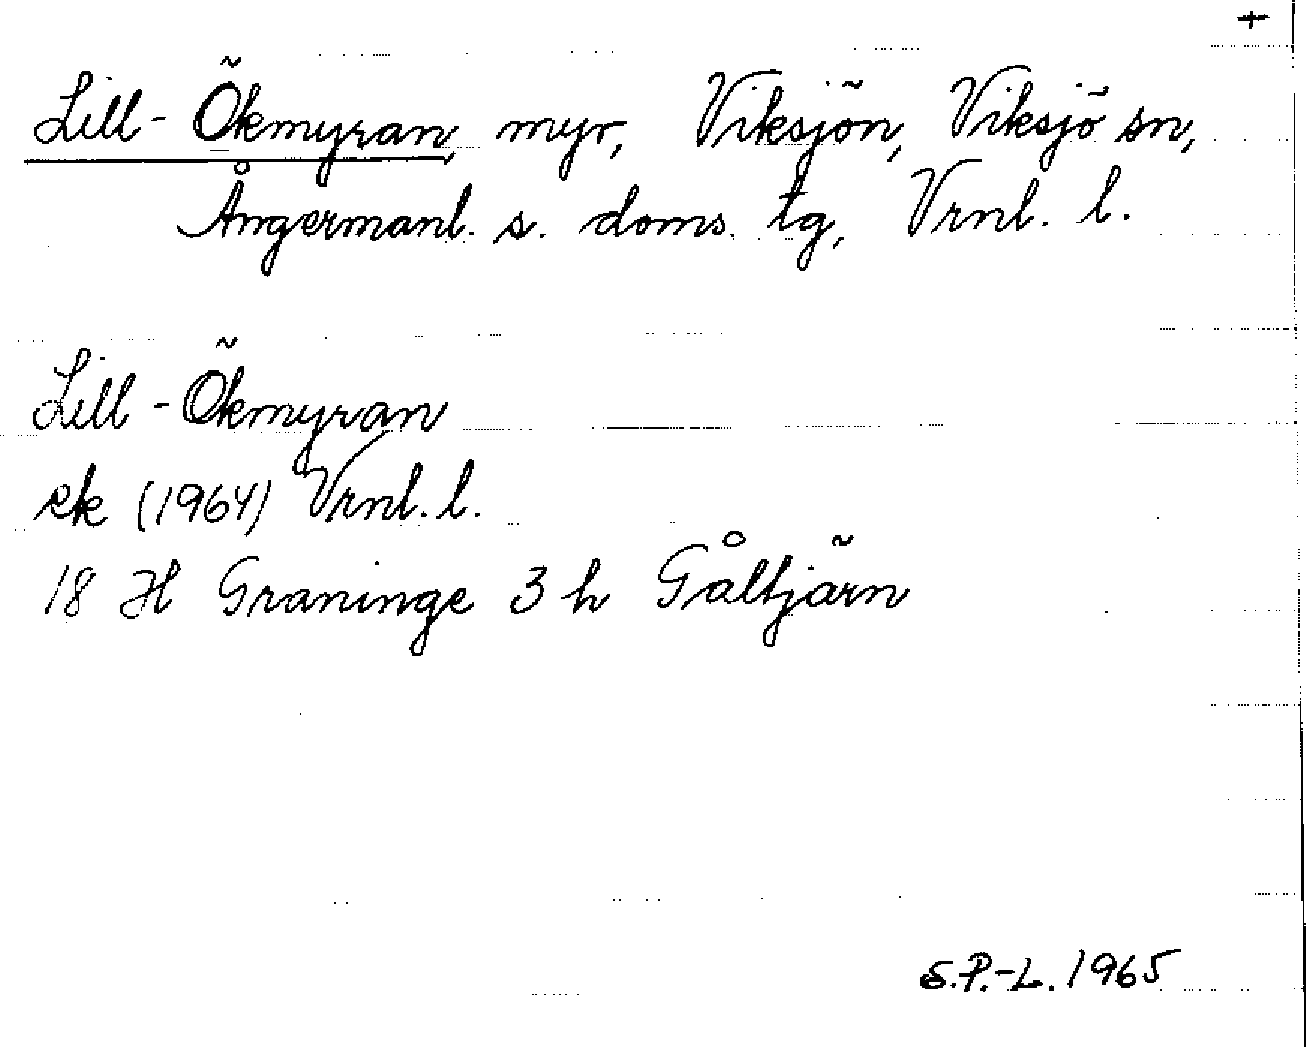 +
Lill-Ökmyran, myr, Viksjön, Viksjö sn,
Ångermanl. s. doms. tg, Vrnl. l.
Lill-Ökmyran
ek (1964) Vrnl. l.
18 H Graninge 3 h Gåltjärn
S.P.-L. 1965